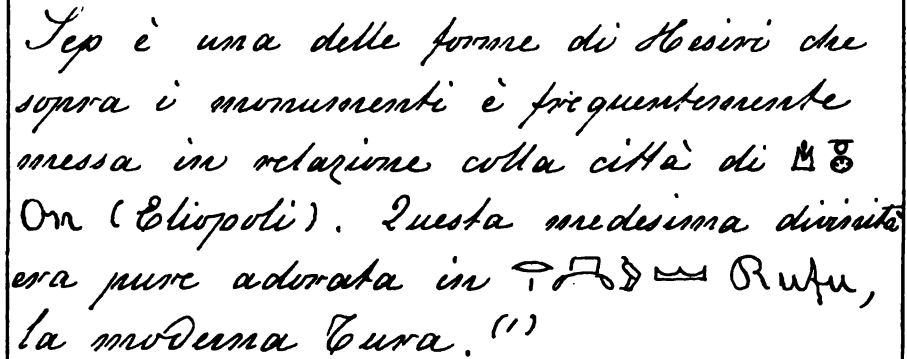 Sep è una delle forme di Hesiri che
sopra i monumenti è frequentemente
messa in relazione colla città di
On (Eliopoli). Questa medesima divinità
era pure adorata in Rufu,
la moderna Tura. (1)